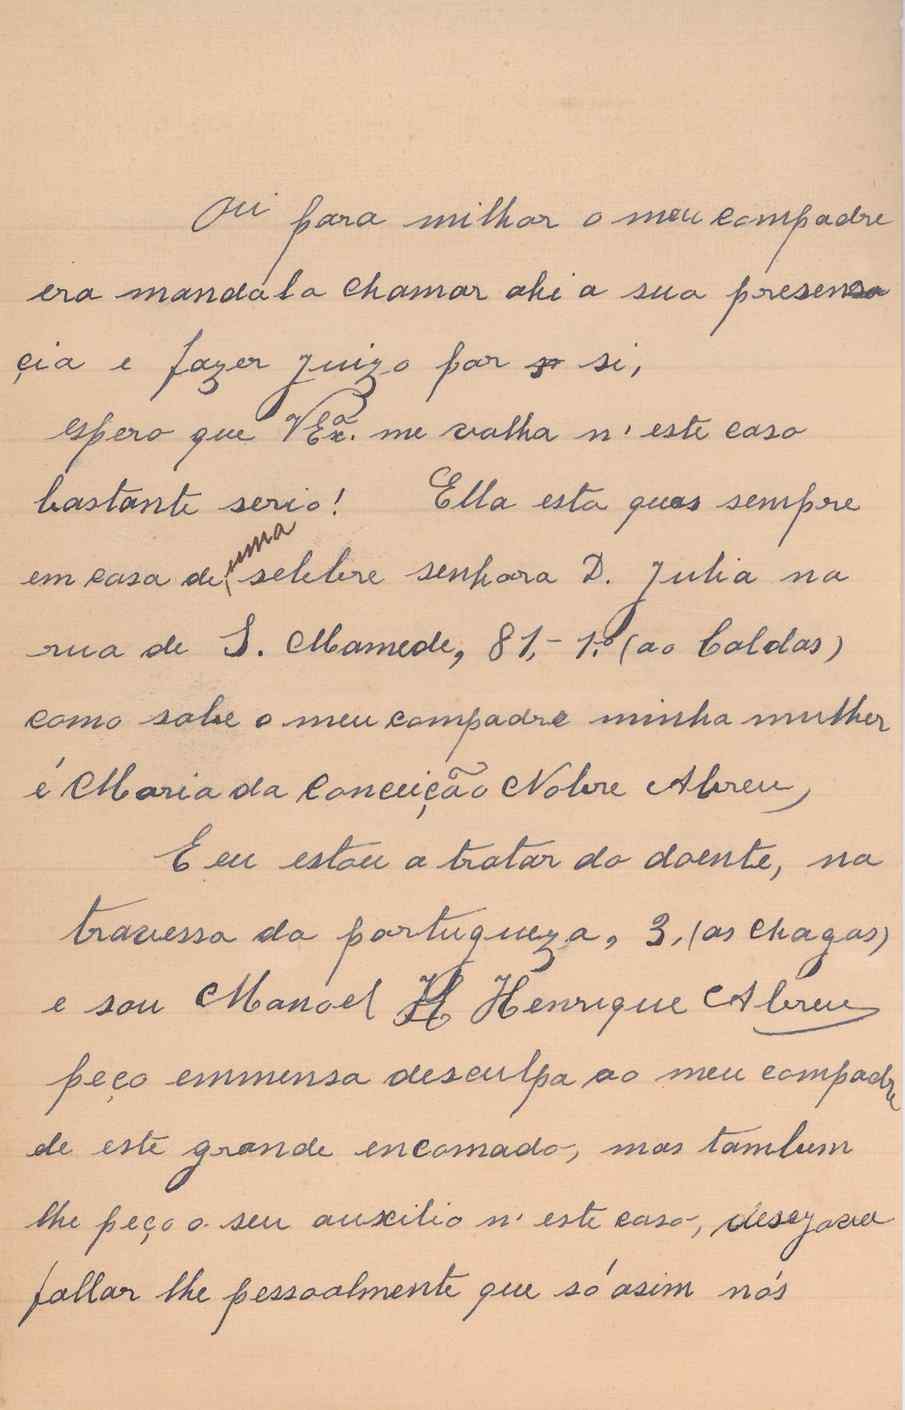 Ou para milhor o meu compadre
era mandala chamar ahi a sua presensa
çia e fazer juizo por si,
espero que VExª. me valha n'este caso
bastante serio! Ella esta quas sempre
em casa de uma selebre senhora D. Julia na
rua de S. Mamede, 81,- 1.º (ao Caldas)
como sabe o meu compadre minha mulher
é Maria da Conceição Nobre Abreu,
E eu estou a tratar do doente, na
travessa da portugueza, 3, (as Chagas)
e sou Manoel H Henrique Abreu
peço emmensa desculpa ao meu compadre
de este grande encomado, mas tambem
lhe peço o seu auxilio n'este caso, desejava
fallar lhe pessoalmente que só asim nós